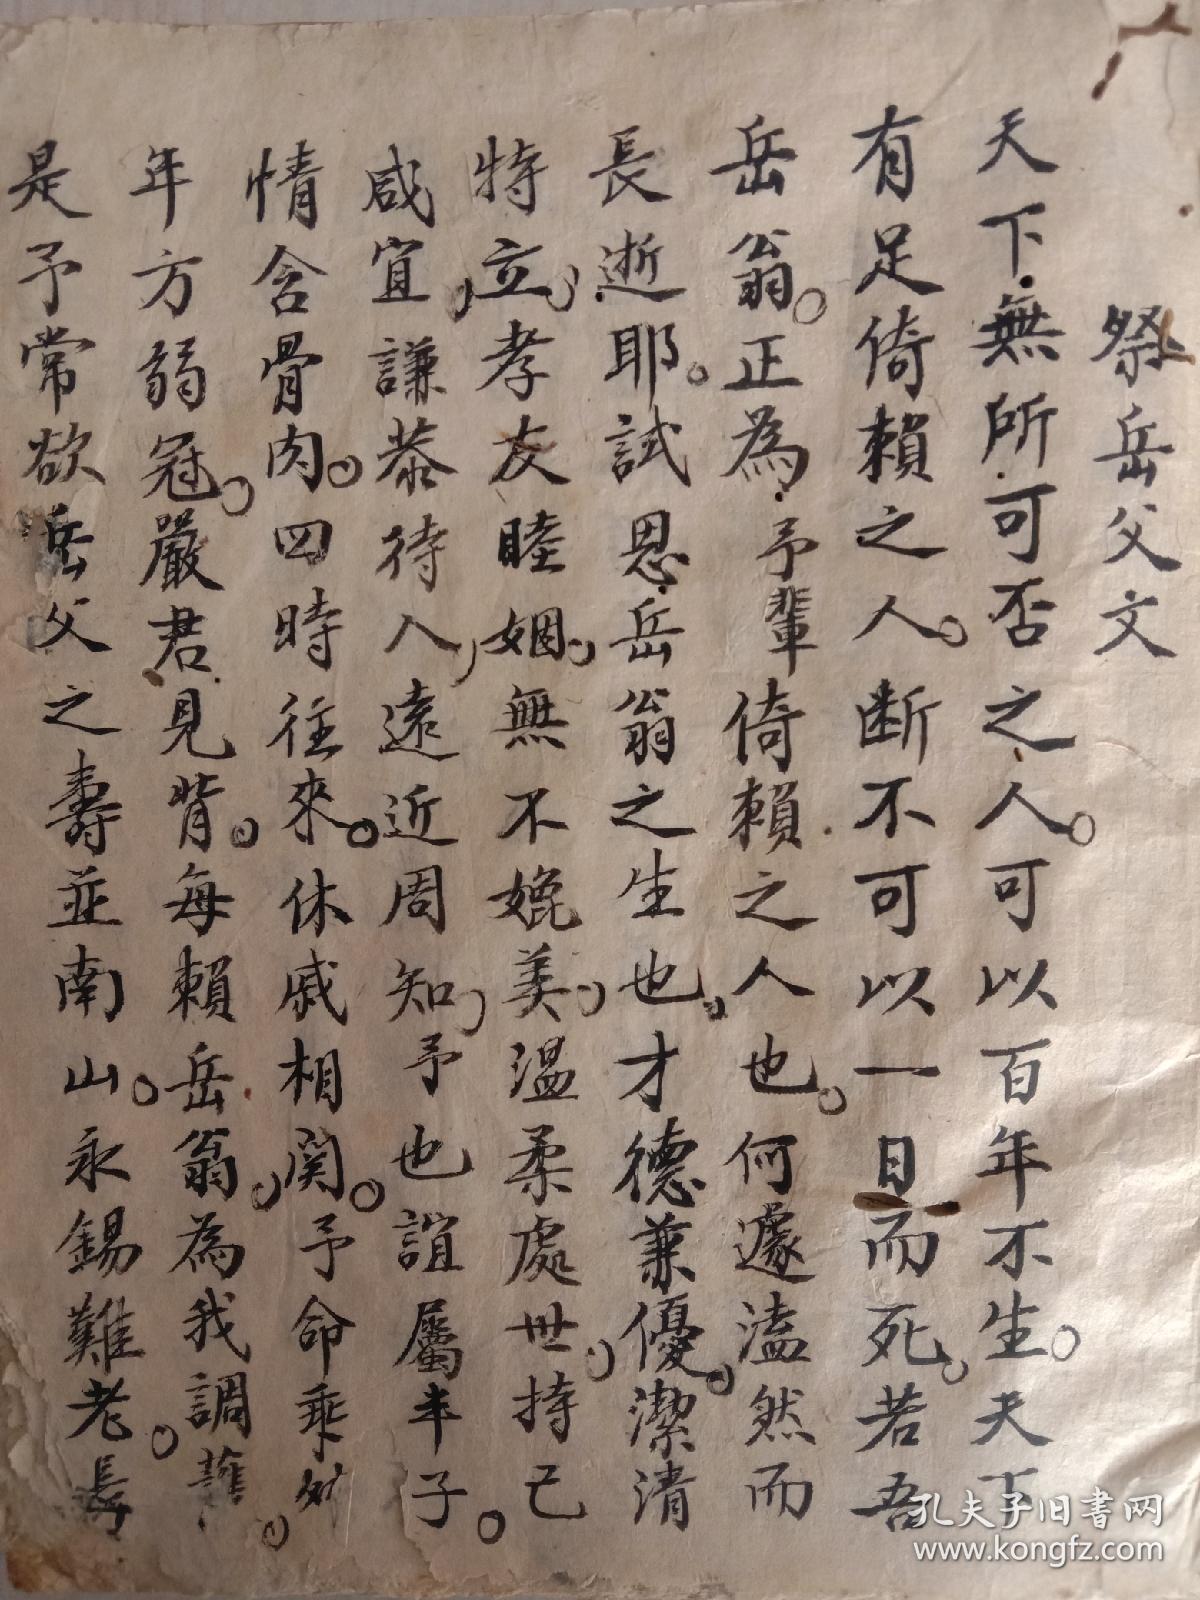 祭岳父文
天下無所可否之人。可以百年不生。天下
有足倚賴之人。断不可以一日而死。若吾
岳翁。正為予輩倚賴之人也。何遽溘然而
長逝耶。試思岳翁之生也。才德兼優。潔清
特立。孝友睦姻。無不娩美。温柔處世。持己
咸宜。謙恭待人。遠近周知。予也誼屬半子。
情含骨肉。四時往來。休戚相関。予命乖舛。
年方弱冠。嚴君見背。每賴岳翁。為我調護。
是予常欲岳父之壽並南山。永錫難老。長
孔夫子旧书网
www.kongfz.com